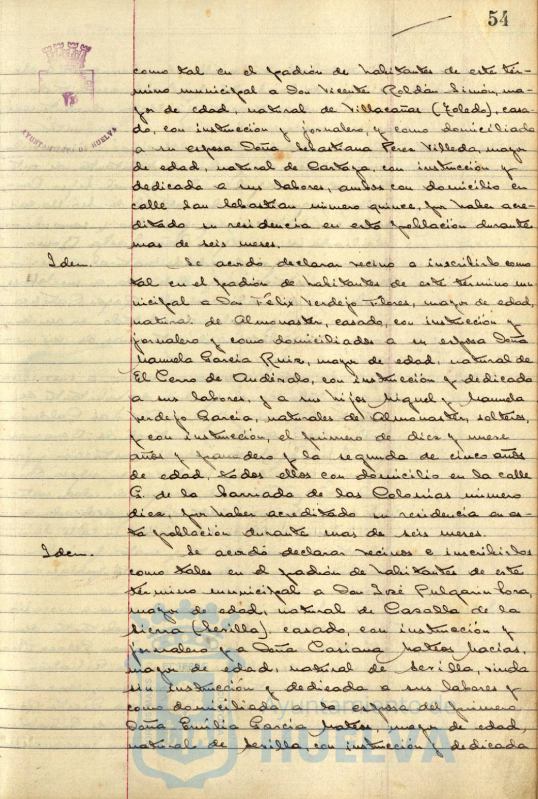 54
AYUNTAMIENTO DE HUELVA
como tal en el padrón de habitantes de este tér-
mino municipal a Don Vicente Roldán Simón, ma-
yor de edad, natural de Villacañas (Toledo), casa-
do, con instrucción y jornalero, y como domiciliada
a su esposa Doña Sebastiana Perez Villeda, mayor
de edad, natural de Cartaya, con instrucción y
dedicada a sus labores, ambos con domicilio en
calle San Sebastian número quince, por haber acre-
ditado su residencia en esta población durante
mas de seis meses.
Idem. Se acordó declarar vecino e inscribirlo como
tal en el padrón de habitantes de este término mu-
nicipal a Don Félix Verdejo Flores, mayor de edad,
natural de Almonaster, casado, con instrucción y
jornalero y como domiciliados a su esposa Doña
Manuela Garcia Ruiz, mayor de edad, natural de
El Cerro de Andévalo, con instrucción y dedicada
a sus labores, y a sus hijos Miguel y Manuela
Verdejo Garcia, naturales de Almonaster, solteros,
y con instrucción, el primero de diez y nueve
años y panadero y la segunda de cinco años
de edad, todos ellos con domicilio en la calle
G. de la barriada de las Colonias número
diez, por haber acreditado su residencia en es-
ta población durante mas de seis meses.
Idem. Se acordó declarar vecinos e inscribirlos
como tales en el padrón de habitantes de este
término municipal a Don José Pulgarin Lora,
mayor de edad, natural de Cazalla de la
Sierra (Sevilla), casado, con instrucción y
jornalero y a Doña Casiana Mateos Macias,
mayor de edad, natural de Sevilla, viuda
sin instrucción y dedicada a sus labores y
como domiciliada a la esposa del primero
Doña Emilia Garcia Mateos, mayor de edad,
natural de Sevilla, con instrucción y dedicada
Ayuntamiento de
HUELVA